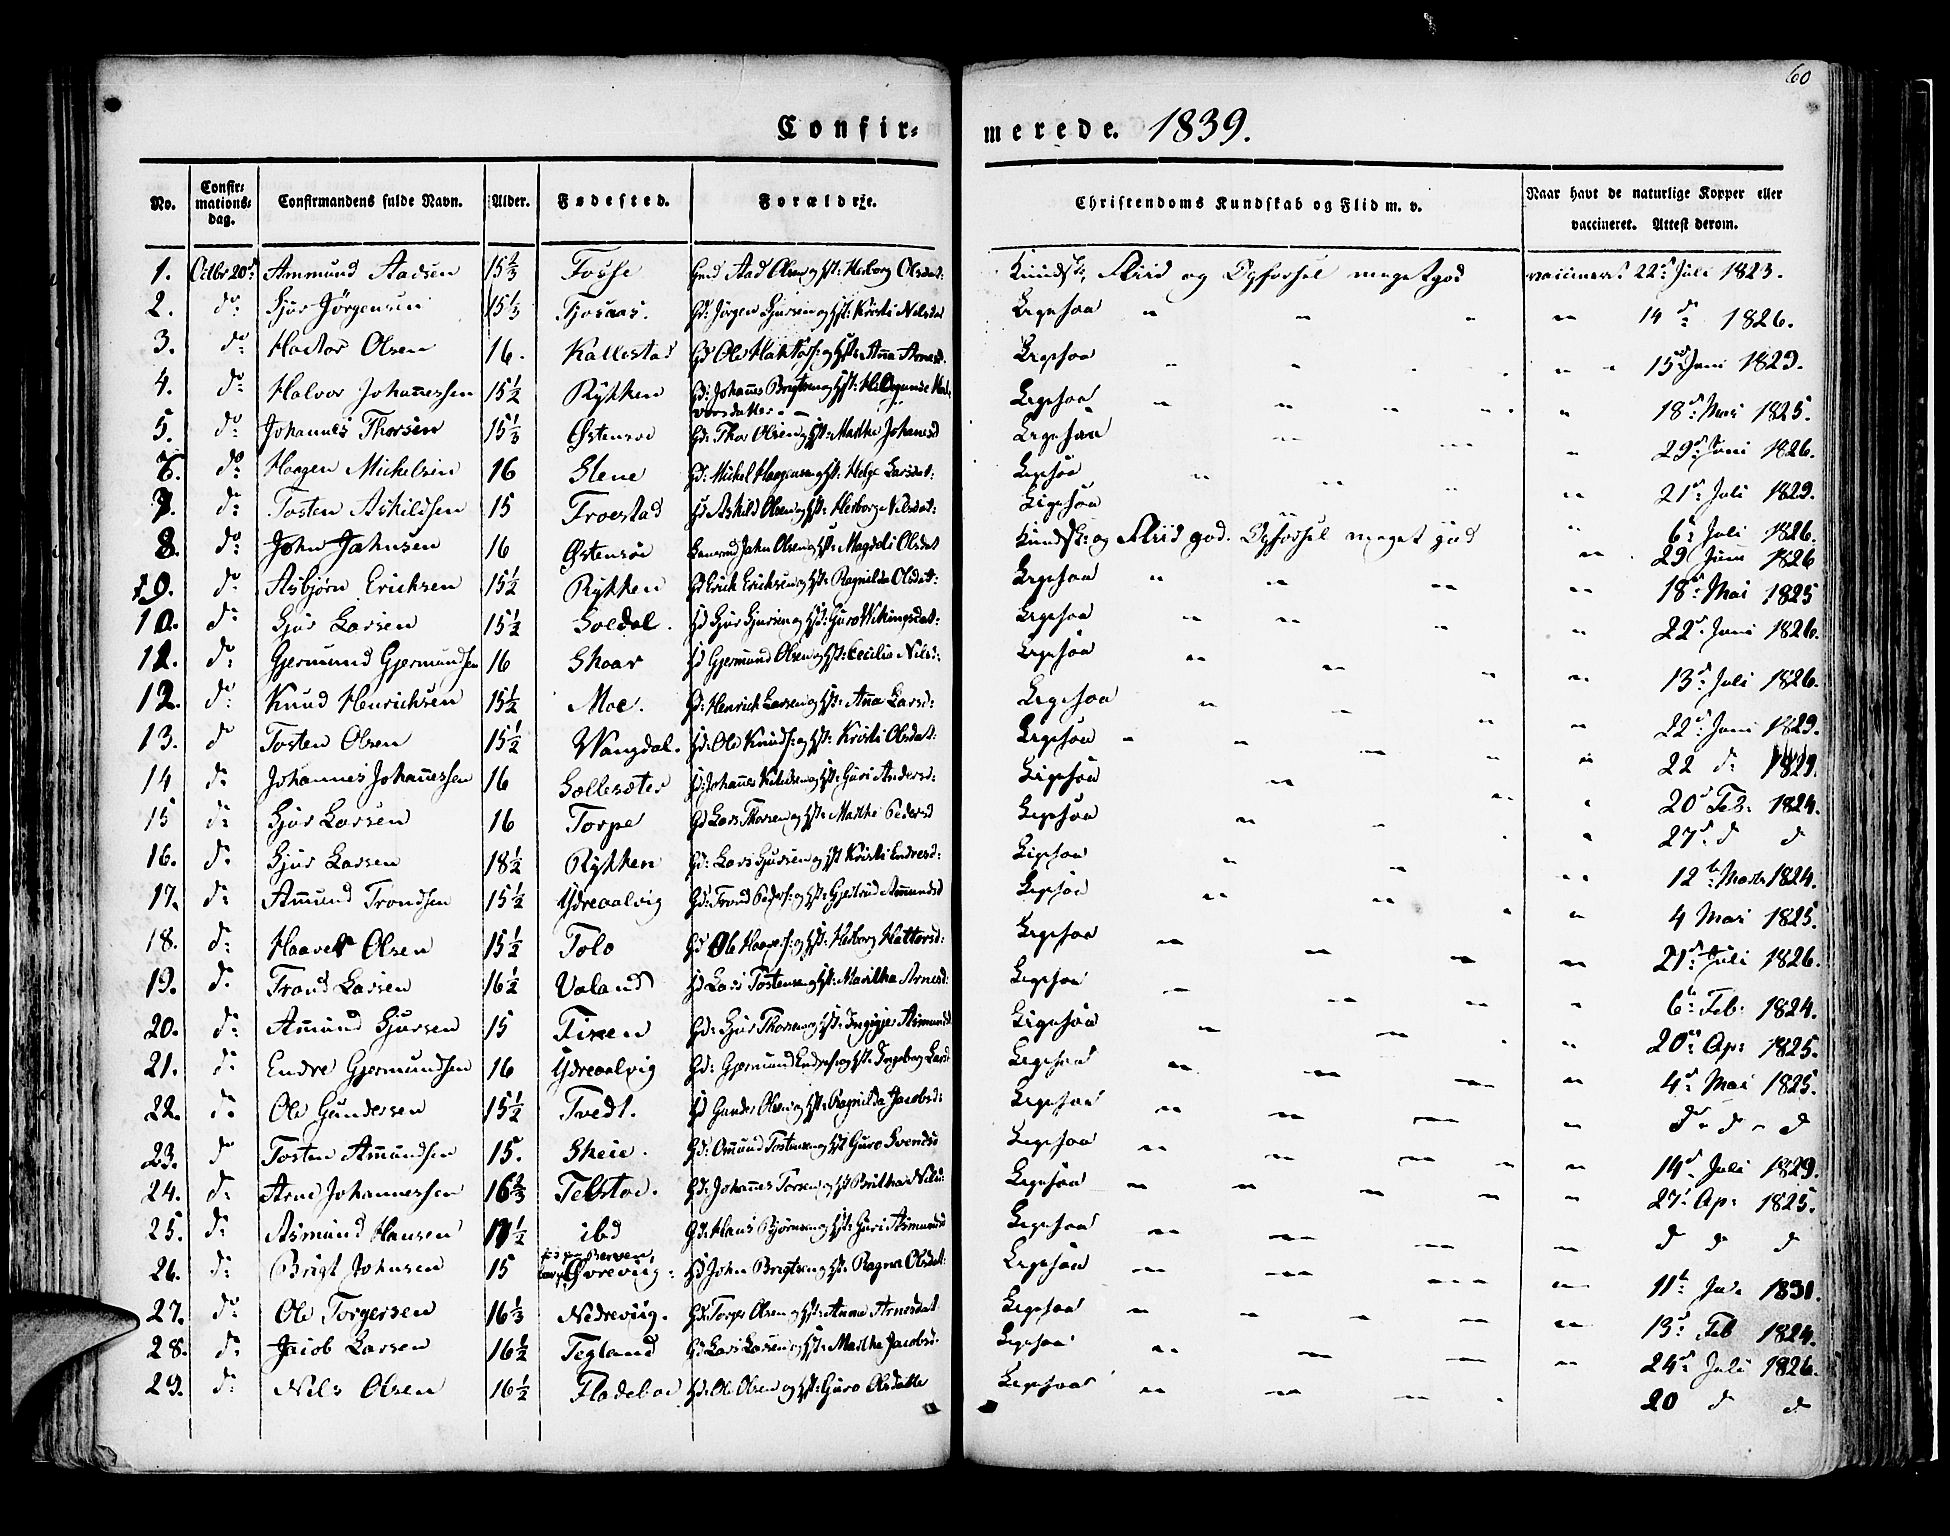 60
Confir=merede. 1839.
No. Confir=mations=dag. Confirmandens fulde Navn. Alder. Fødested. Forældre. Christendoms Kundskab og Flid m. v. Naar havt de naturlige Kopper eller vaccineret. Attest derom.
1. Octbr 20d Ammund Aadsen 15 2/3 Fosse Gmd Aad Olsen og Hst: Herborg Olsdat: Kundsk: Fliid og Opførsel meget god vaccineret 22d Juli 1823.
2. do Sjur Jørgensen 15 1/3 Tjosaas. Gd: Jørgen Sjursen og Hst: Kristi Nilsdat Ligesaa " " " " 14 d: 1826.
3. do Hactor Olsen 16. Kallestad Gd Ole Hattors: og Hst: Anna Arnesd. Ligesaa " " " " 15d Juni 1829.
4. do Halvor Johannessen 15 1/2 Rykken Gd: Johannes Brigtsen og Hst: Hildegunde Halvorsdatter Ligesaa " " " " 18d: Mai 1825.
5. do Johannes Thorsen 15 1/3 Østensøe Gd: Thor Olsen og Hst: Marthe Johannesd Ligesaa " " " 29d: Juni 1826.
6. do Haagen Michelsen 16 Stene Gd: Mickel Haagensen og Hst: Helge Larsdat: Ligesaa " " " " 21d: Juli 1829.
7. do Tosten Askildsen 15 Froestad Hd Askild Olsen og Hst: Herborg Nilsdat: Ligesaa " 6t Juli 1826.
8. do John Johnsen 16 Østensøe John Olsen og Hst: Magdeli Olsdat Kundsk: og Fliid god. Opførsel meget god " 29 Juni 1826
9. do Asbjørn Ericksen 15 1/2 Rykken Gd Erick Ericksen og Hst: Ragnilda Olsdat: Ligesaa " " " " 18d: Mai 1825
10. do Sjur Larsen 15 1/2 Soldal. Hd Sjur Sjursen og Hst: Guro Vikingsdat: Ligesaa " " " " 22d. Juni 1826.
11. do Gjermund Gjermundsen 16 Skaar Hd Gjermund Olsen og Hst: Cecilia Nilsd: Ligesaa " " " " 13d: Juli 1826.
12. do Knud Henrichsen 15 1/2 Moe. Gd: Henrich Larsen og Hst: Anna Larsd: Ligesaa " " " " 22d: Juni 1829.
13. do Tosten Olsen 15 1/2 Wangdal. Hd: Ole Knuds: og Hst: Kristi Olsdat: Ligesaa " " " " 22 d: 1829.
14 do Johannes Johannessen 16 Sollesæter Hd: Johannes og Hst: Guri Andersd: Ligesaa " " " 20d Feb: 1824.
15 do Sjur Larsen 16 Torpe Gd Lars Thorsen og Hst: Marthe Pedersd Ligesaa " " " 27d. d d
16. do Sjur Larsen 18 1/2 Rykken Gd: Lars Sjursen og Hst Kristi Endresd: Ligesaa " " " " 12te: Marts 1824.
17. do Ammund Trondsen 15 1/2 Ydreaalvig Gd: Trond Peders: og Hst: Gjertrud Ammundsd Ligesaa " " " 4 Mai 1825.
18. do Haaver Olsen 15 1/2 Tolo Gd Ole Haavers: og Hst: Herborg Hattorsd: Ligesaa " " " " 21d: Juli 1826.
19. do Trond Larsen 16 1/2 Valand Hd Lars Tostensen og Hst: Maritha Arnesd: Ligesaa " " " " 6t: Feb: 1824.
20. do Ammund Sjursen 15 Fixen Gd: Sjur Thorsen og Hst: Ingigjer Asmunsd Ligesaa " " " 20d: Ap: 1825.
21. do Endre Gjermundsen 16 Ydreaalvig Gd: Gjermund Endres: og Hst: Ingeborg Larsd Ligesaa " " " " 4d. Mai 1825.
22. do Ole Gundersen 15 1/2 Tvedt. Hd Gunder Olsen og Hst: Ragnilda Jacobsd: Ligesaa " " " " d - d - d
23. do Tosten Ammundsen 15. Skeie. Gd: Omund Tostensen og Hst Guro Svendsd Ligesaa " " " " 14d. Juli 1829.
24. do Arne Johannessen 16 2/3 Telstøe. Gd: Johannes Torsen og Hst Britha Nilsd: Ligesaa " " " " 27t Ap: 1825.
25. do Asmund Hansen 17 1/2 ibd Gd: Hans Bjørnsen og Hst: Guri Asmunsd Ligesaa " " " " d d d
26. do Brigt Johnsen 15 Øvreviig: Hd John Brigtsen og Hst: Ragna Olsdat: Ligesaa " " " " 11te Jul. 1831.
27. do Ole Torgersen 16 1/3 Nedreviig. Gd: Torger Olsen og Hst: Anna Arnesdat Ligesaa " " " " 13d Feb 1824.
28. do Jacob Larsen 16 1/2 Tegland Gd: Lars Larsen og Hst: Marthe Jacobsd: Ligesaa " " " " 24d: Juli 1826.
29. do Nils Olsen 16 1/2 Fladeboe Hd: Ole Olsen og Hst: Guro Olsdatte Ligesaa " " " 20 d d